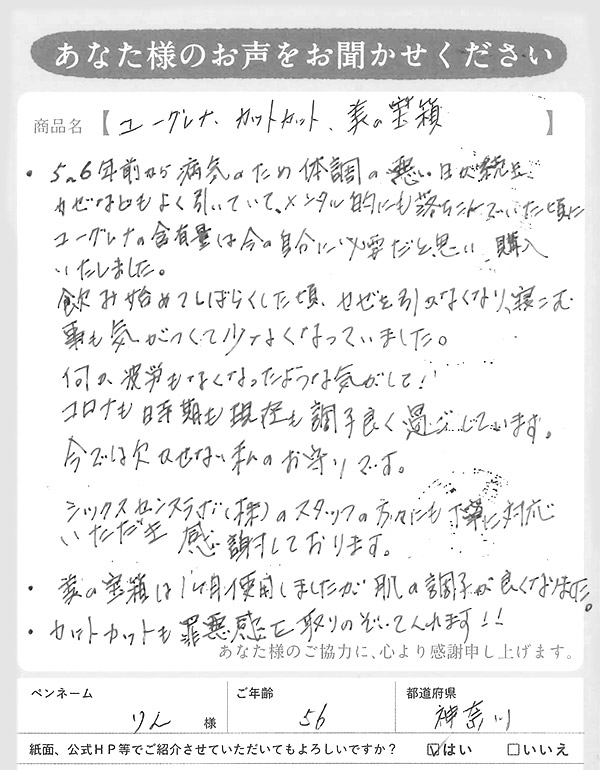 あなた様のお声をお聞かせください
商品名【ユーグレナ、カットカット、美の宝箱】
・5~6年前から病気のため体調の悪い日が続き、
カゼなどもよく引いていて、メンタル的にも落ちこんでいた頃に
ユーグレナの含有量は今の自分に必要だと思い購入
いたしました。
飲み始めてしばらくした頃、カゼを引かなくなり、寝こむ
事も気がつくて少なくなっていました。
何か疲労もなくなったような気がして!
コロナも時期も現在も調子良く過ごしています。
今では欠かせない私のお守りです。
シックスセンスラボ(株)のスタッフの方々にも丁寧に対応
いただき感謝しております。
・美の宝箱は1ヶ月使用しましたが肌の調子が良くなりました。
・カットカットも罪悪感を取りのぞいてくれます!!
あなた様のご協力に、心より感謝申し上げます。
ペンネーム ご年齢 都道府県
りん 様 56 神奈川
紙面、公式HP等でご紹介させていただいてもよろしいですか? ☑はい □いいえ